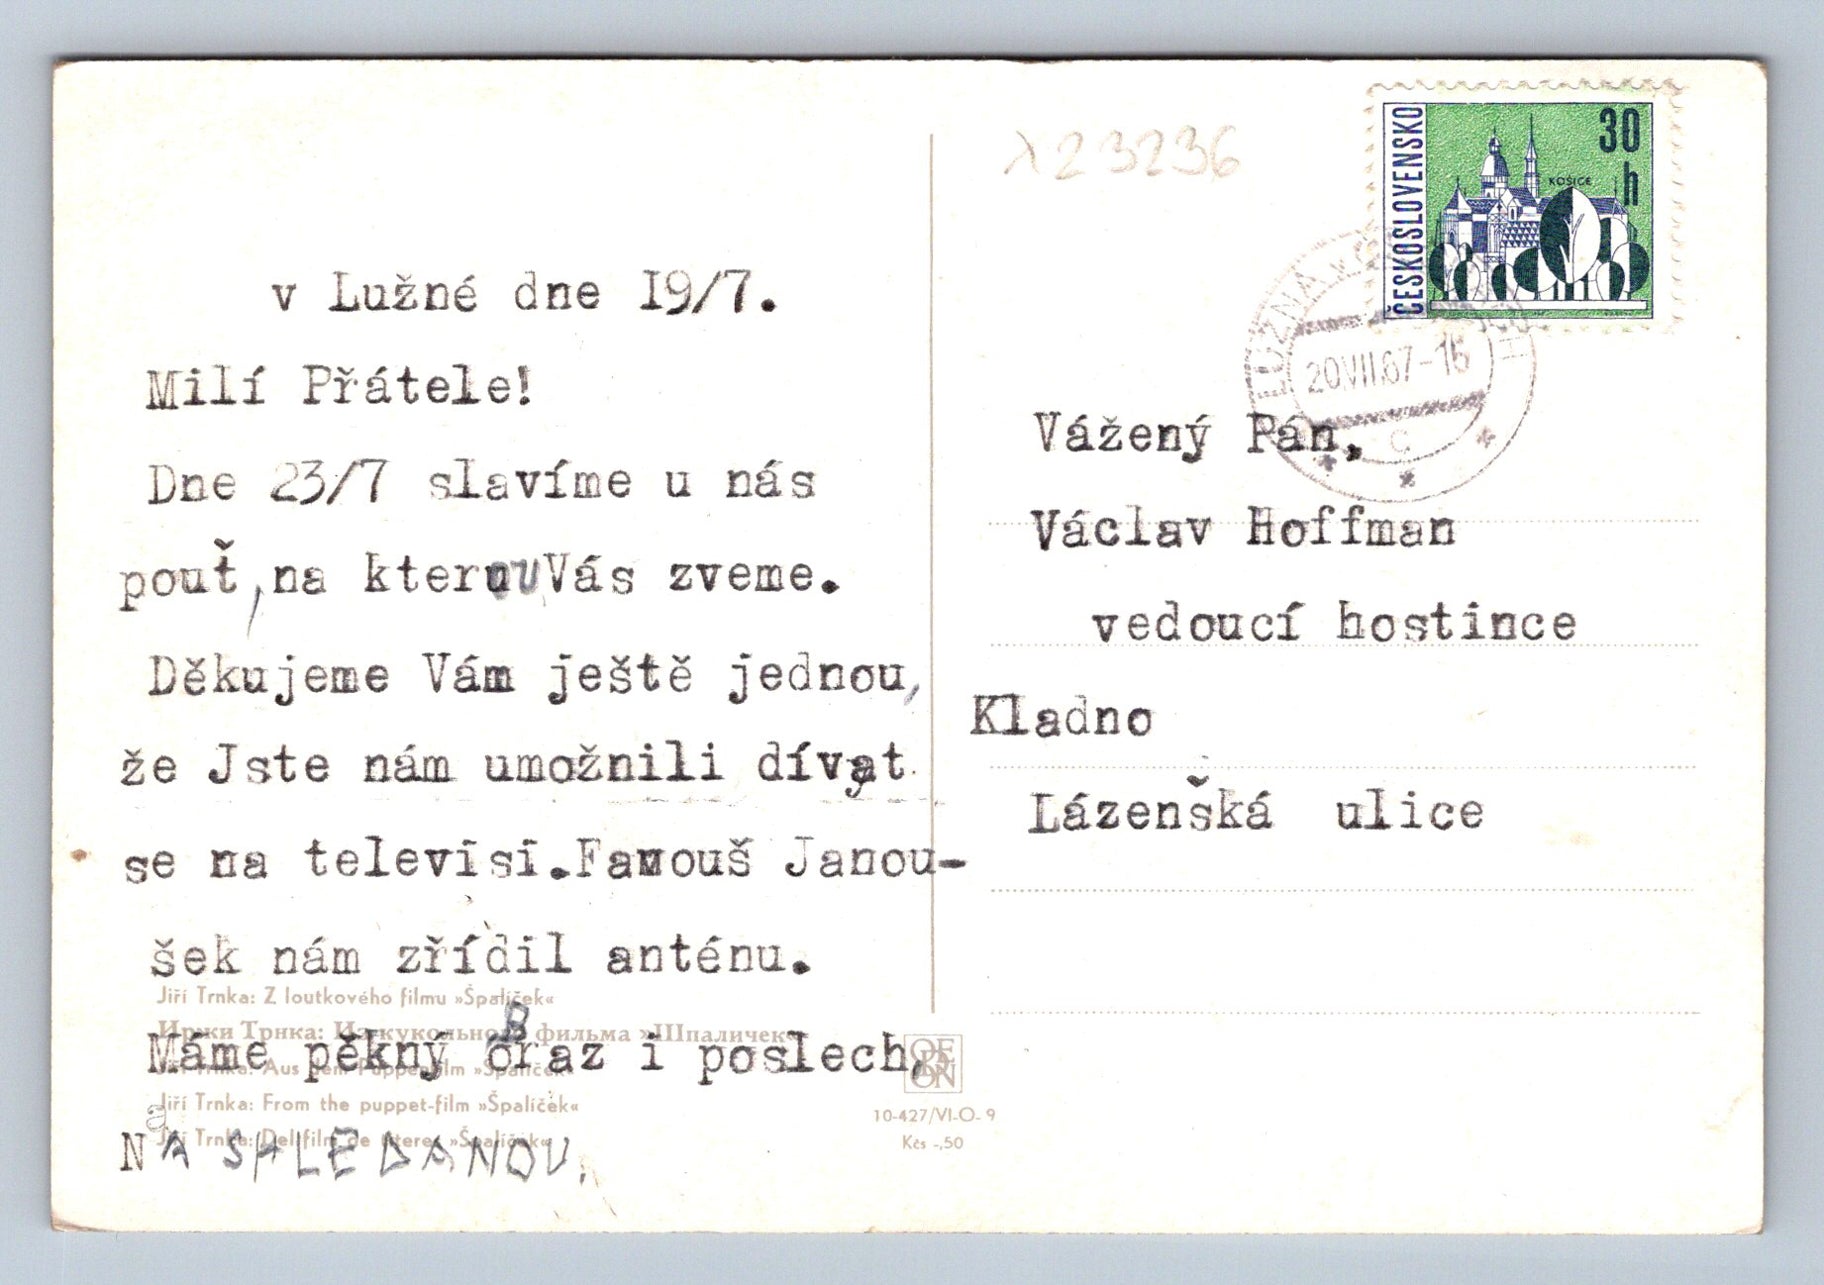 v Lužné dne I9/7.
Milí Přátele!
Dne 23/7 slavíme u nás
pouť, na kterou Vás zveme.
Děkujeme Vám ještě jednou,
že Jste nám umožnili dívat
se na televisi. Fanouš Janou-
šek nám zřídil anténu.
Máme pěkný obraz i poslech,
a
NA SHLEDANOU.
Jiří Trnka: Z loutkového filmu »Špalíček«
Иржи Трнка: Из кукольного фильма »Шпаличек«
Jiří Trnka: Aus dem Puppenfilm »Špalíček«
Jiří Trnka: From the puppet-film »Špalíček«
Jiří Trnka: Del film de títeres »Špalíček«
ORBON
10-427/VI-O-9
Kčs -,50
λ23236
ČESKOSLOVENSKO
30
h
KOŠICE
LUŽNÁ
20.VII.67-16
C
Vážený Pán,
Václav Hoffman
vedoucí hostince
Kladno
Lázenšká ulice